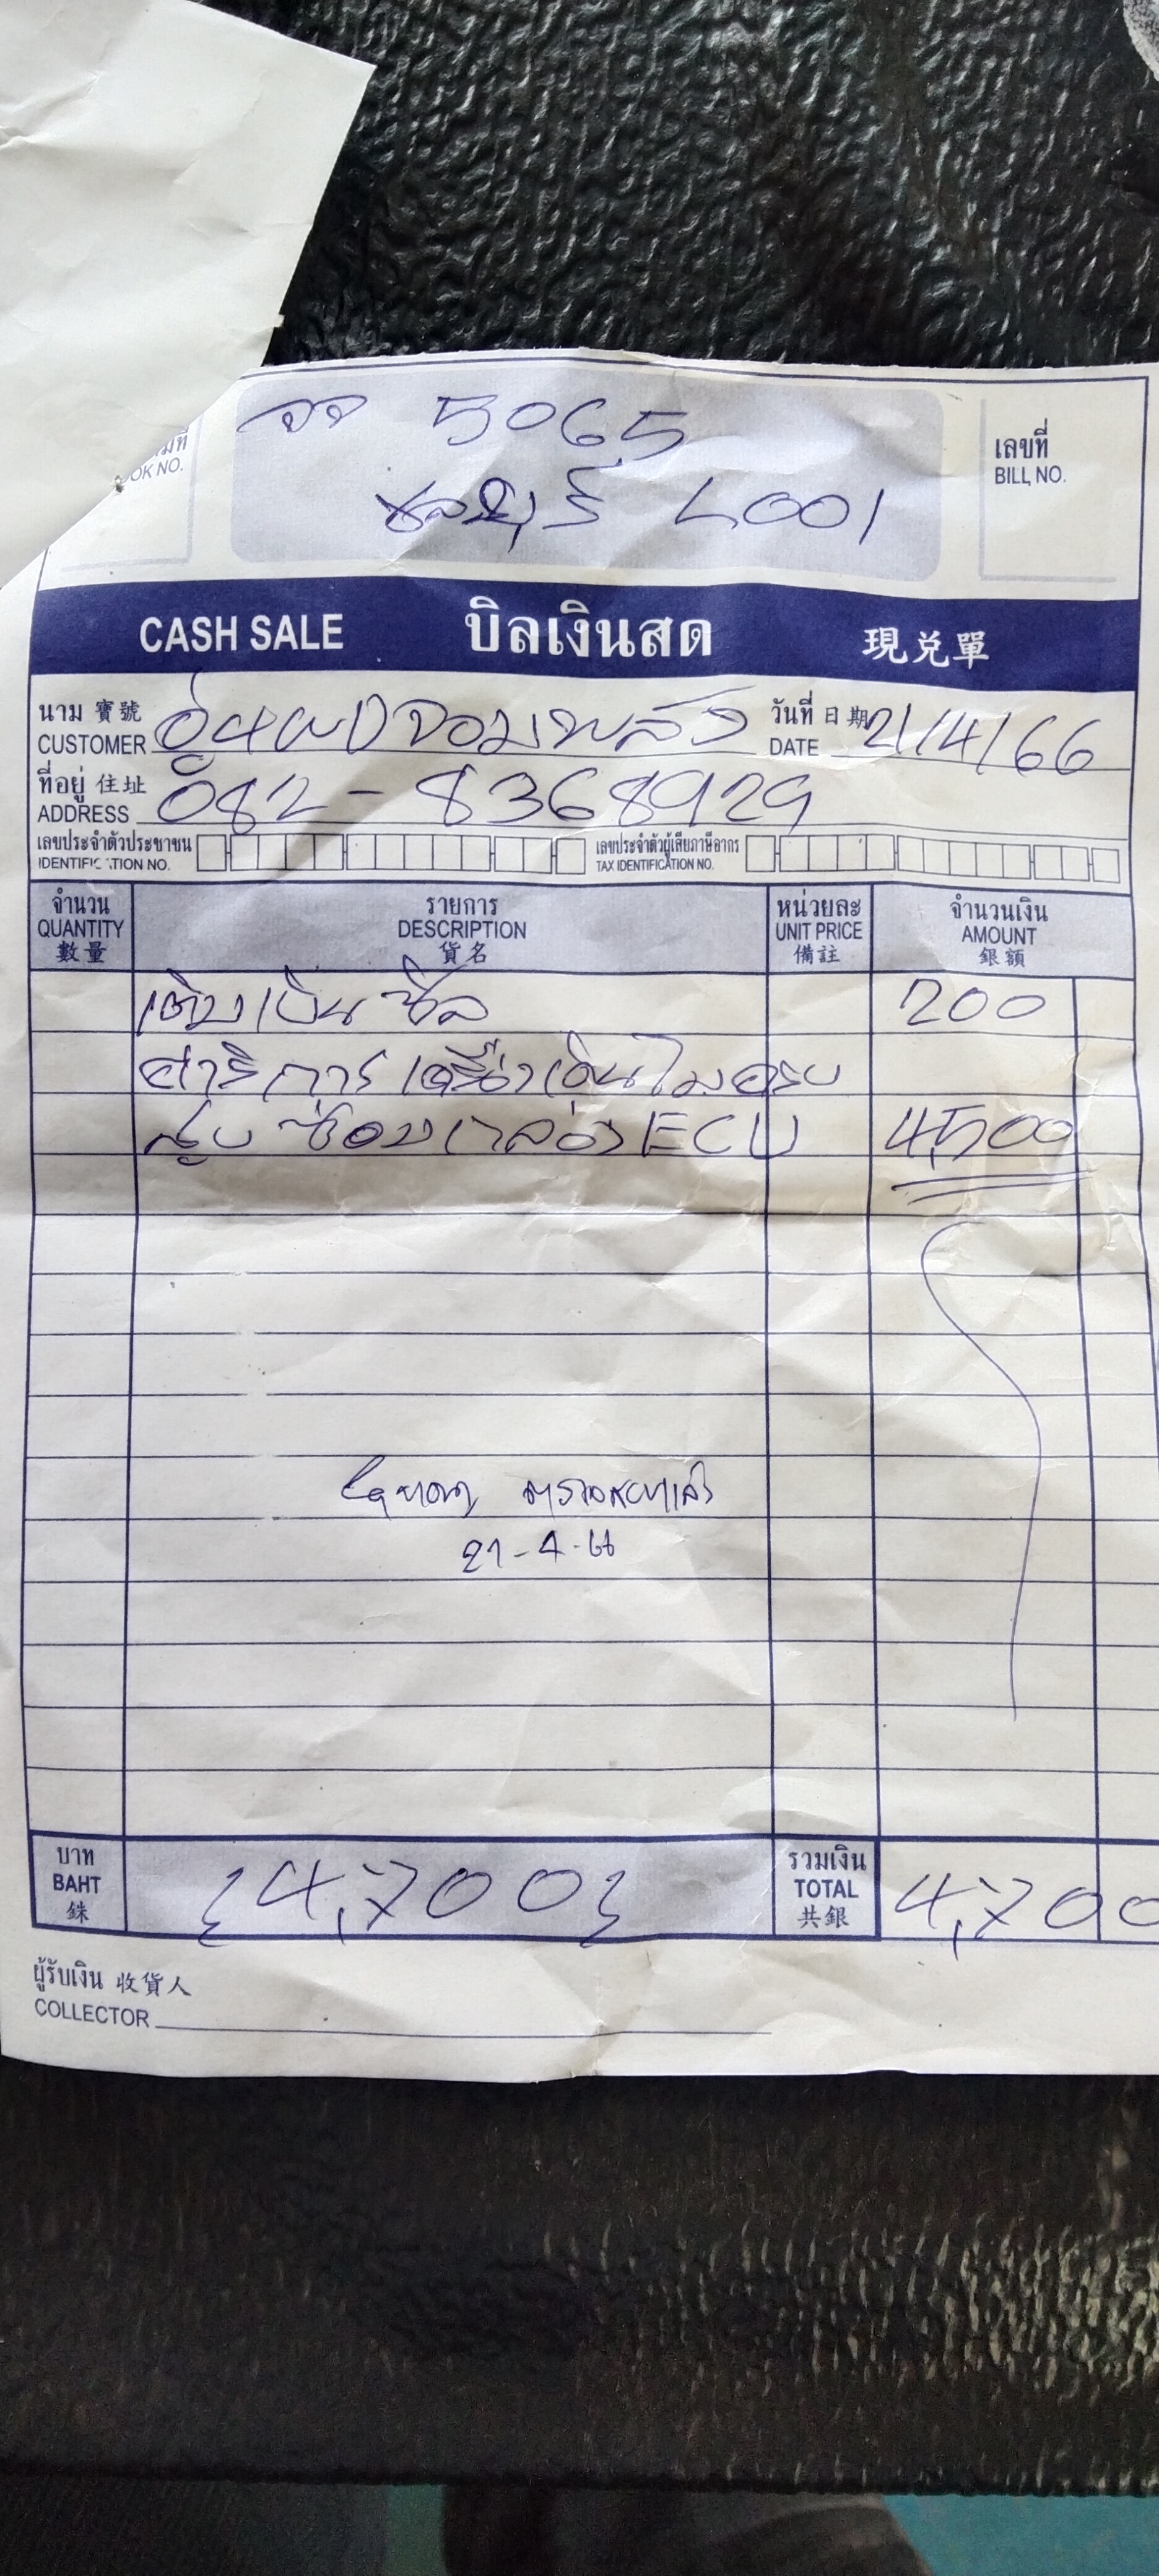 จจ 5065
ชลบุรี L001
มที่
OK NO.
เลขที่
BILL NO.
CASH SALE บิลเงินสด 現兑單
นาม 寶號
CUSTOMER อู่ จอมพลัง
วันที่ 日期
DATE 21/4/66
ที่อยู่ 住址
ADDRESS 082-8368929
เลขประจำตัวประชาชน
IDENTIFICATION NO.
เลขประจำตัวผู้เสียภาษีอากร
TAX IDENTIFICATION NO.
จำนวน รายการ หน่วยละ จำนวนเงิน
QUANTITY DESCRIPTION UNIT PRICE AMOUNT
數量 貨名 備註 銀額
เติมเบนซิล 200
เครื่องเดินไม่ครบ
สูบ ซ่อมกล่อง ECU 4,500
ตรวจสอบแล้ว
21-4-66
บาท
BAHT
銖
{4,700}
รวมเงิน
TOTAL
共銀
4,700
ผู้รับเงิน 收貨人
COLLECTOR